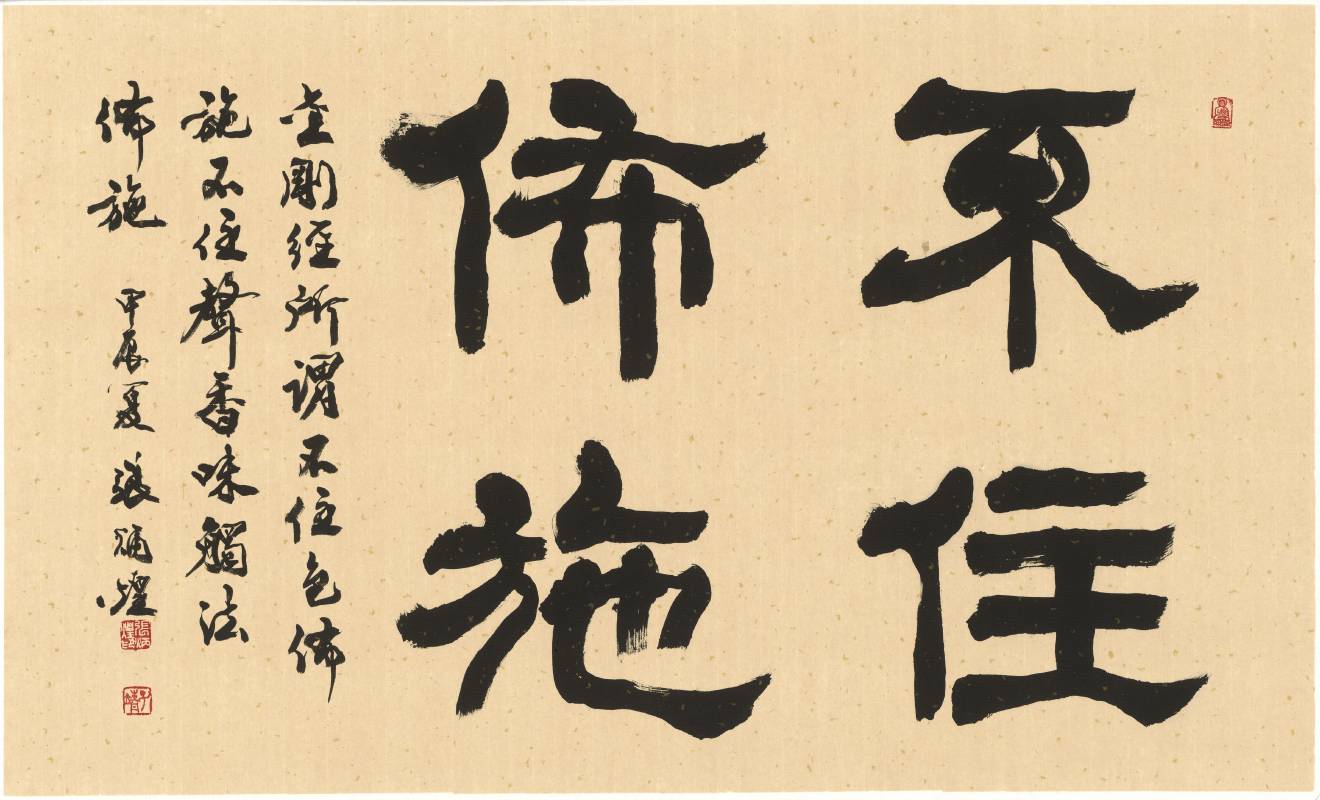 不住
佈施
金剛經所謂不住色佈
施不住聲香味觸法
佈施 甲辰夏 張炳煌
張炳煌印